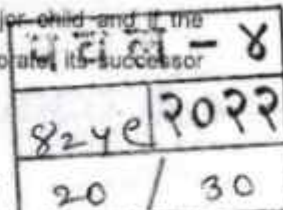 child and if the
its successor
- ४
४२५९ २०२२
20 / 30